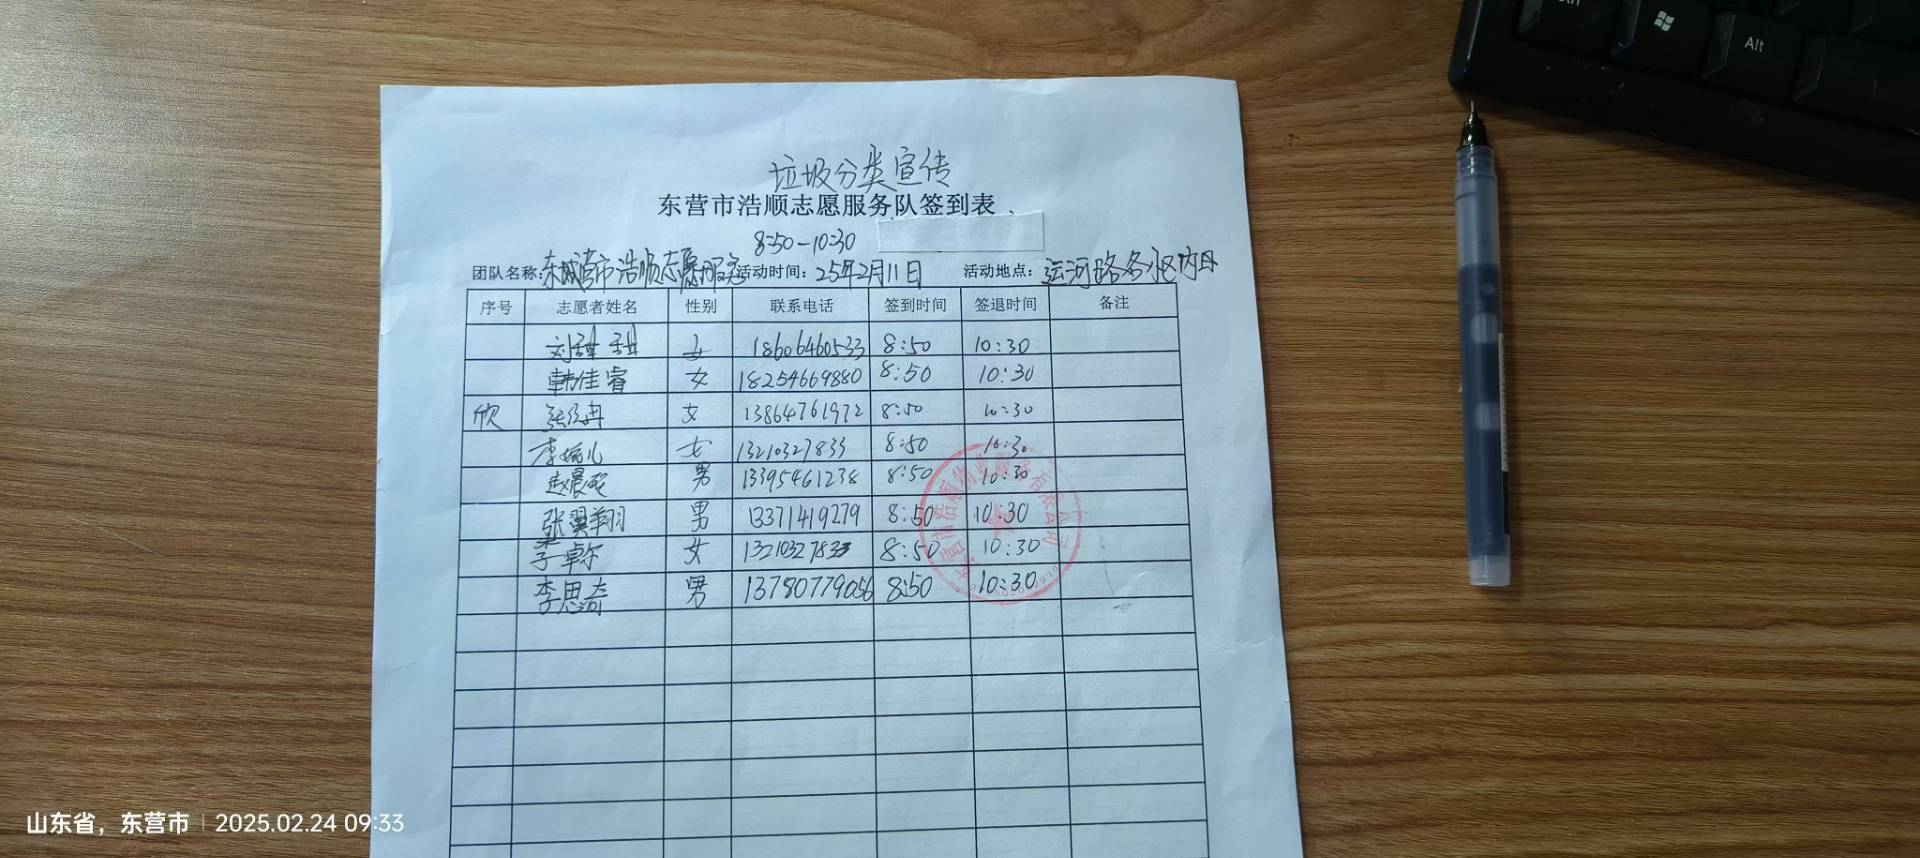 Ctrl
Alt
垃圾分类宣传
东营市浩顺志愿服务队签到表
8:50-10:30
团队名称: 东营市浩顺志愿服务 活动时间: 25年2月11日 活动地点: 运河路各小区内
序号 志愿者姓名 性别 联系电话 签到时间 签退时间 备注
刘甜甜 女 18606460533 8:50 10:30
韩佳睿 女 18254669880 8:50 10:30
欣 张 冉 女 13864761972 8:50 10:30
李婉儿 女 13210327833 8:50 10:30
赵晨 男 13395461238 8:50 10:30
张翼翔 男 13371419279 8:50 10:30
李卓尔 女 1321032783 8:50 10:30
李思奇 男 13780779056 8:50 10:30
山东省，东营市 2025.02.24 09:33